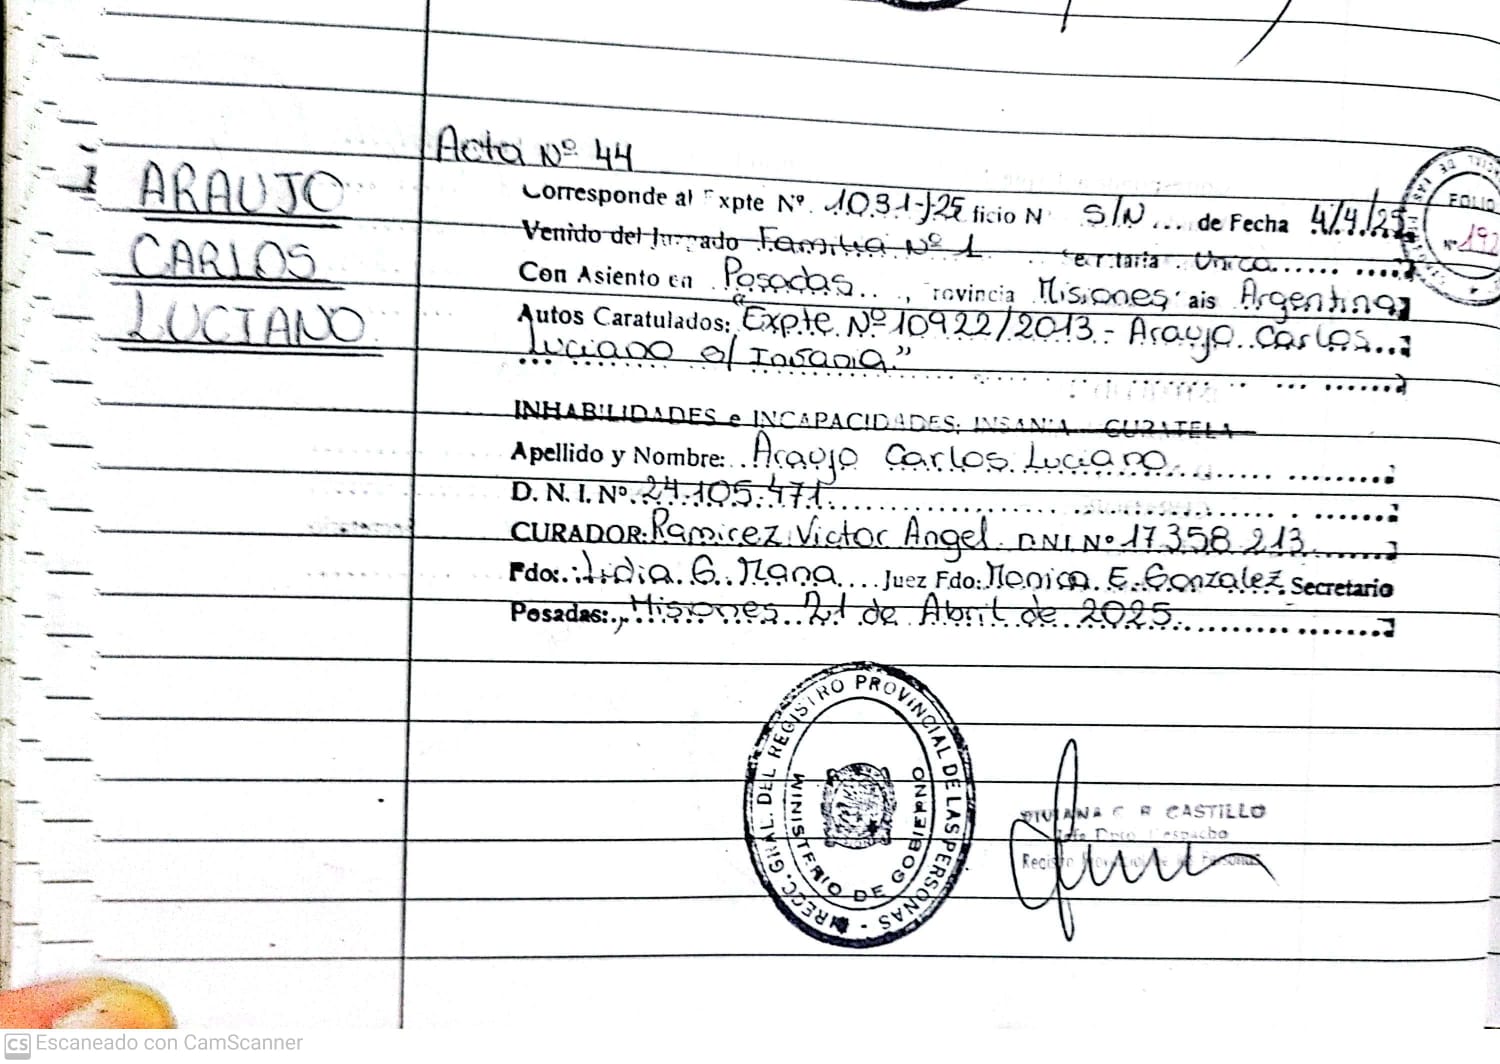 Acta Nº 44
ARAUJO
CARLOS
LUCIANO
Corresponde al Expte Nº 1031-25 ficio N S/N ... de Fecha 4/4/25
FOLIO
Nº 192
Venido del Juzgado Familia Nº 1 ecretaria Unica
Con Asiento en Posadas ..., rovincia Misiones, ais Argentina
Autos Caratulados: "Expte Nº 10922/2013 - Araujo Carlos
Luciano s/ Insania"
INHABILIDADES e INCAPACIDADES: INSANIA CURATELA
Apellido y Nombre: Araujo Carlos Luciano
D. N. I. Nº 24.105.471
CURADOR: Ramirez Victor Angel DNI Nº 17.358.213
Fdo: Lidia G. Mana Juez Fdo: Monica E. Gonzalez Secretario
Posadas:, Misiones 21 de Abril de 2025
DIRECC. GRAL. DEL REGISTRO PROVINCIAL DE LAS PERSONAS -
MINISTERIO DE GOBIERNO
VIVIANA C R CASTILLO
Jefe Dpto Despacho
Registro Provincial de las Personas
CS Escaneado con CamScanner